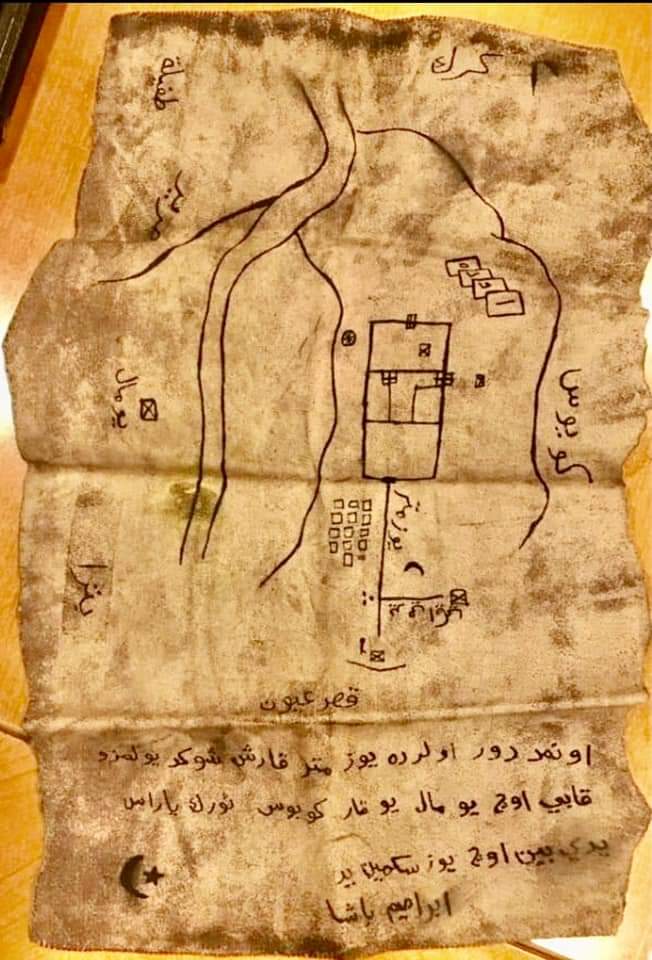 كرك
طفيلة
كوبوس
يومال
بترا
يوز متر
قصر عيون
اوتمد دور اولرده يوز متر قارش شوكد يولمزد
قابي اوج يو مال يو قار كوبوس تورك پاراس
يدي بين اوج يوز سكسين بير
ابراهيم باشا